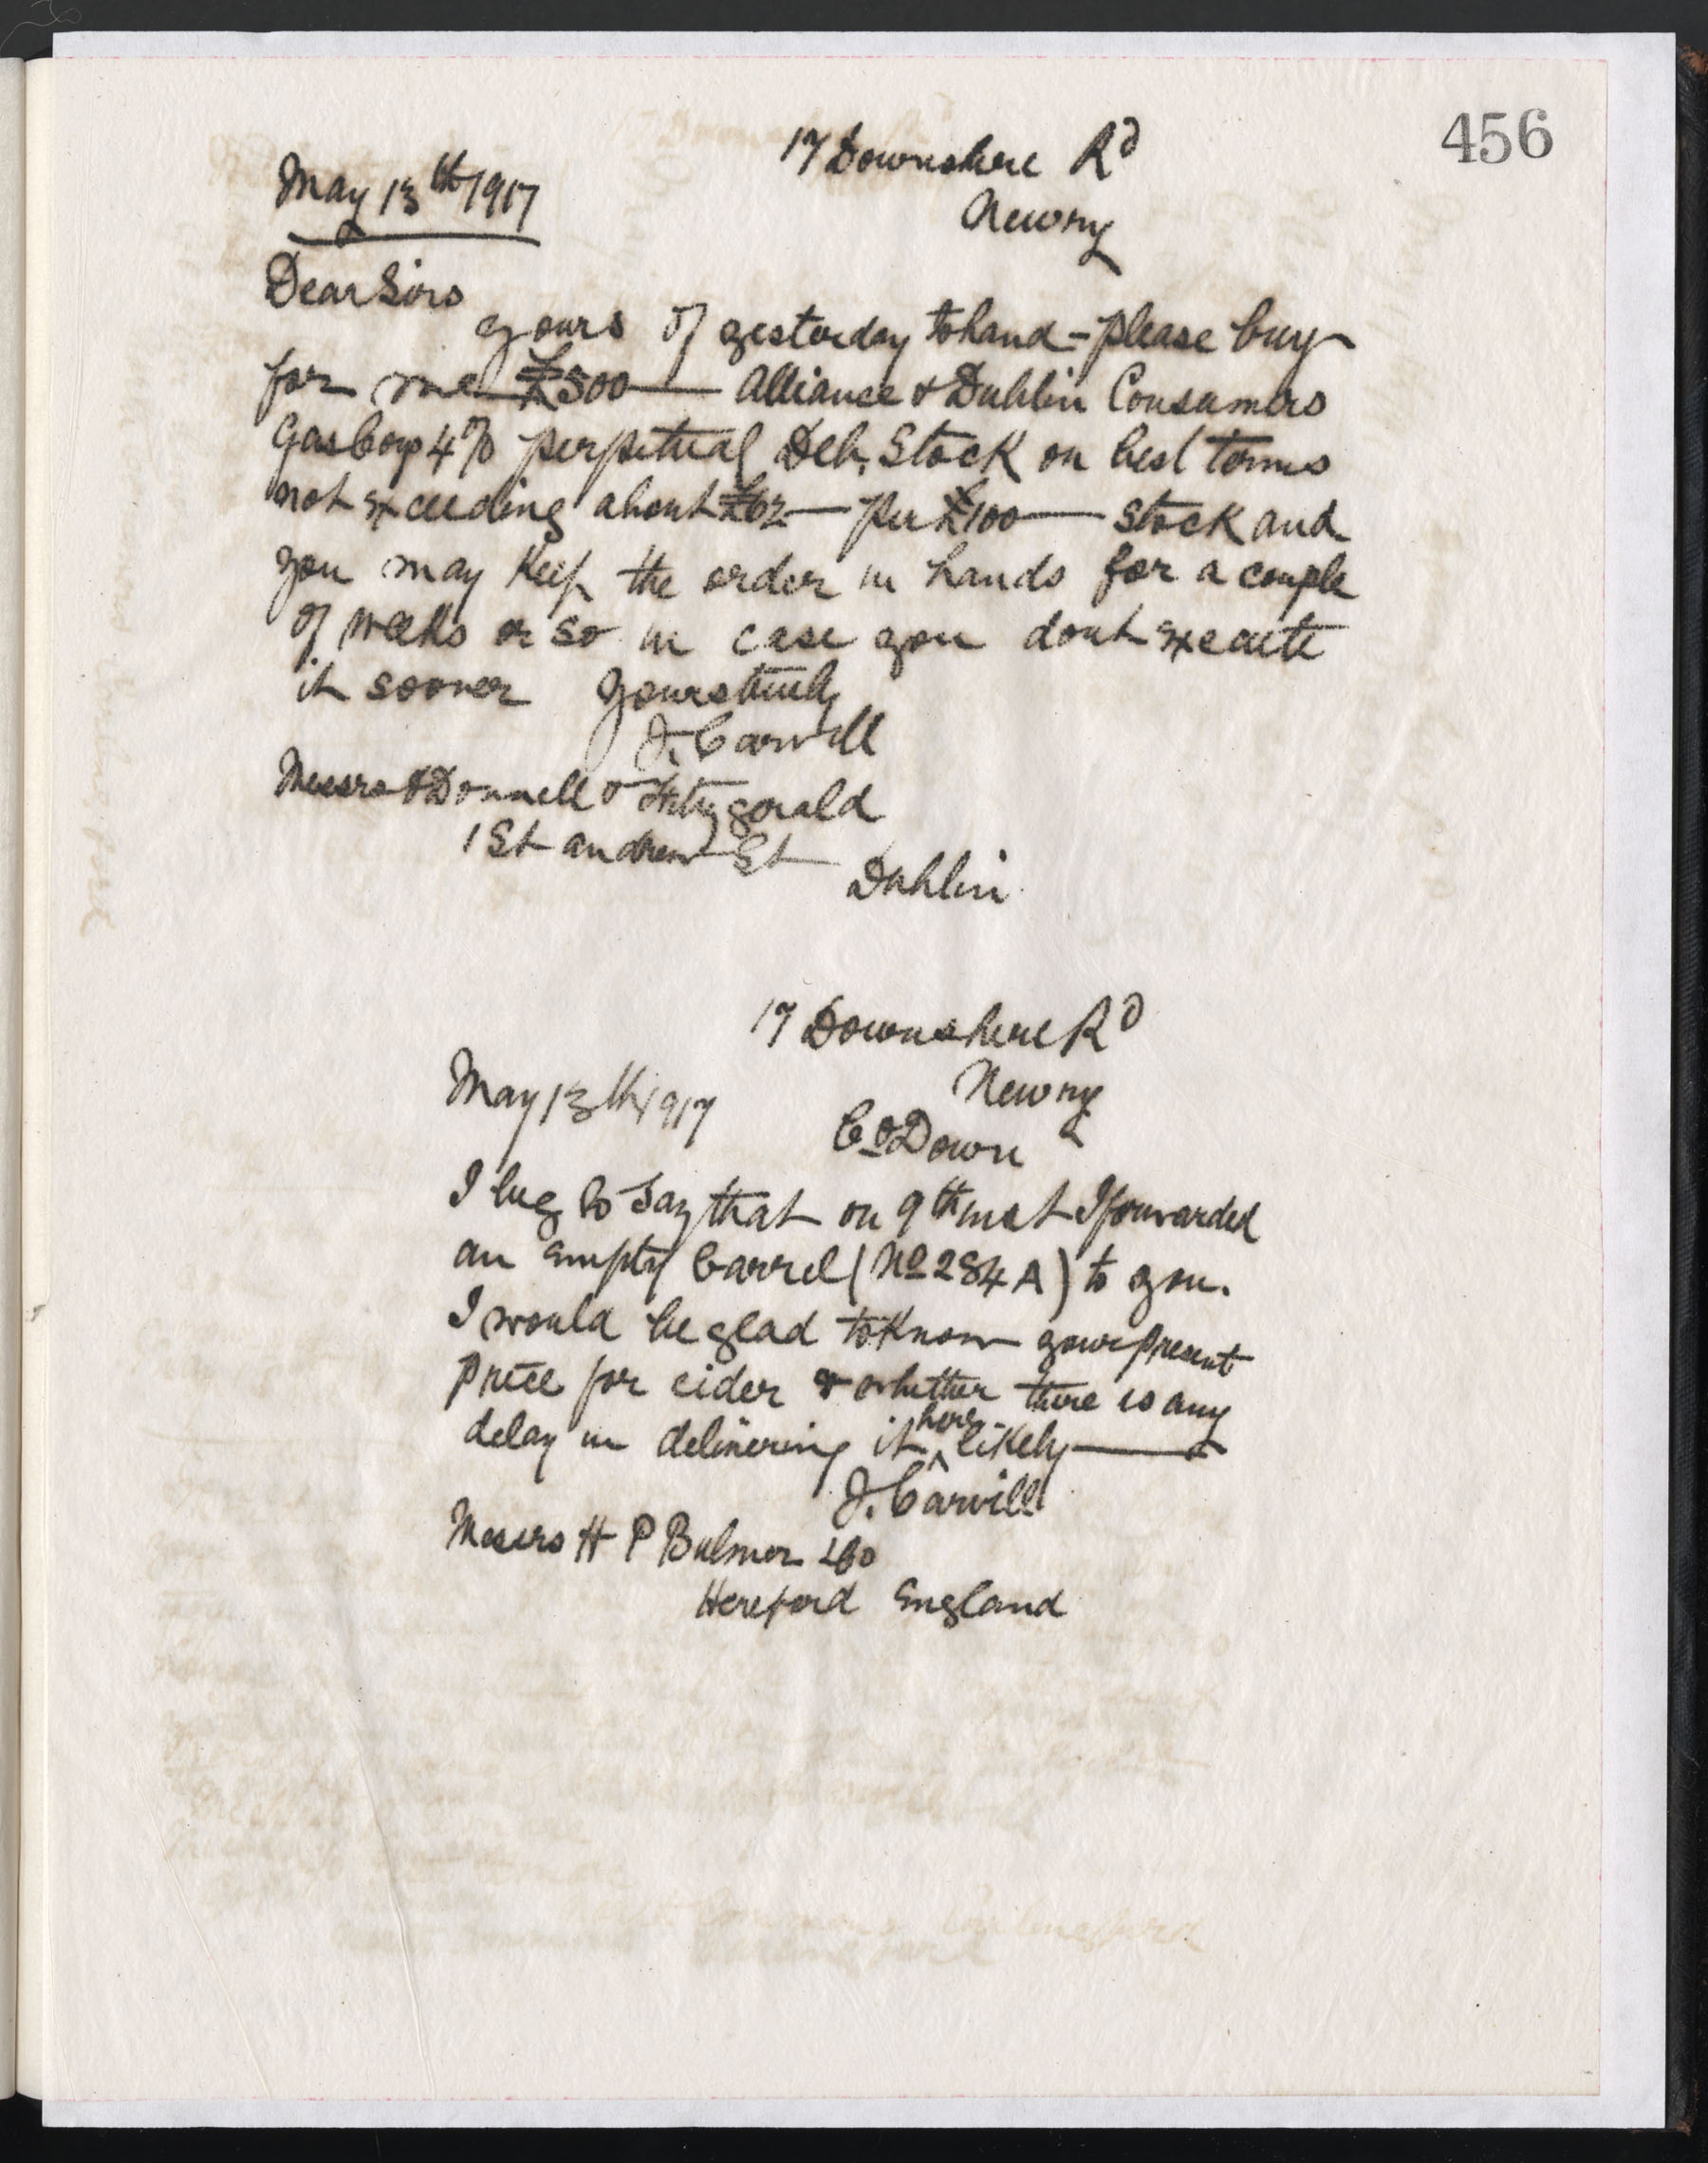 456
17 Downshire Rd
May 13th 1917
Newry
Dear Sirs
yours of yesterday to hand - please buy
for me £500 — Alliance & Dublin Consumers
Gas Coys 4% perpetual Deb. Stock on best terms
not exceeding about £62 — per £100 — stock and
you may keep the order in hands for a couple
of weeks or so in case you dont execute
it sooner yours truly
J. Carvill
Messrs O'Donnell & Fitzgerald
1 St Andrew St
Dublin
17 Downshire Rd
Newry
May 13th 1917
Co Down
I beg to say that on 9th inst I forwarded
an empty barrel (No 284 A) to you.
I would be glad to know your present
price for cider & whether there is any
delay in delivering it here likely —
J. Carvill
Messrs H P Bulmer & Co
Hereford England